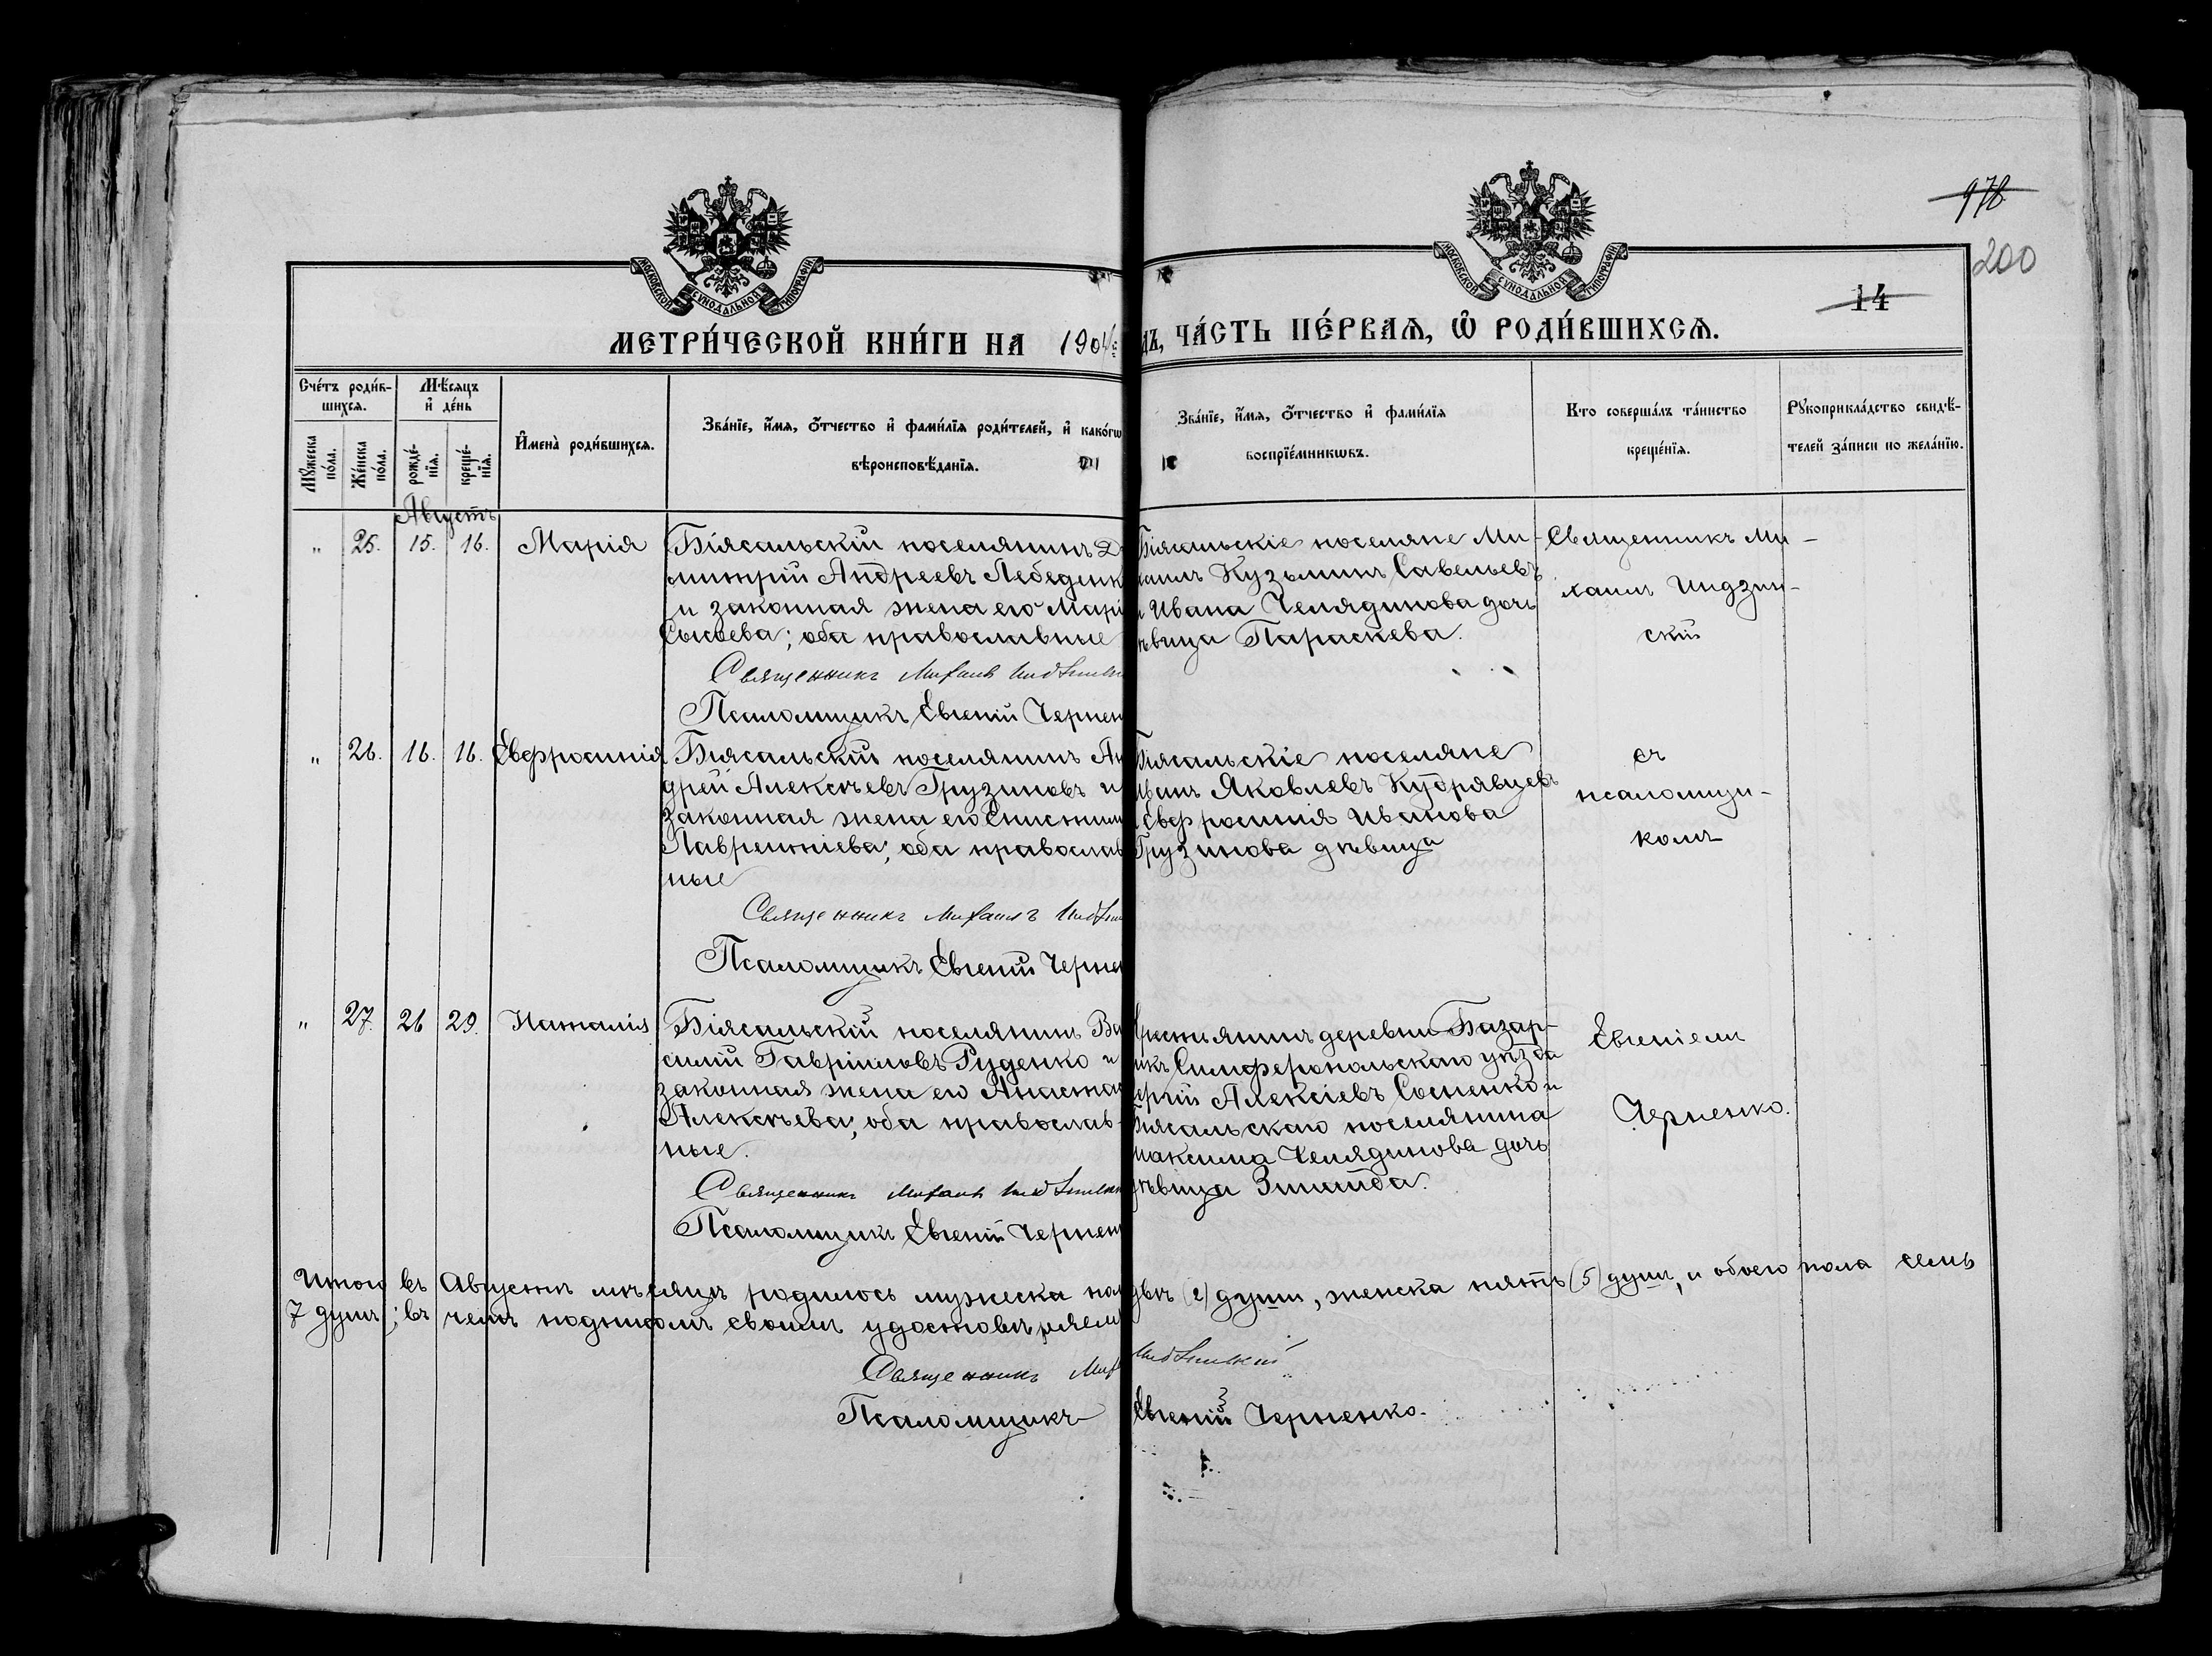 978
200
14
МОСКОВСКОЙ СУНОДАЛЬНОЙ ТИПОГРАФІИ
МОСКОВСКОЙ СУНОДАЛЬНОЙ ТИПОГРАФІИ
МЕТРИ́ЧЕСКОЙ КНИ́ГИ НА 1904
дъ, ЧА́СТЬ ПЕ́РВАѦ, Ѽ РОДИ́ВШИХСѦ.
Сче́тъ роди́в-
шихсѧ.
Мѣ́сѧцъ
и҆ де́нь
Мꙋ́жеска
по́ла.
Же́нска
по́ла.
рожде́-
нїѧ.
креще́-
нїѧ.
И҆мена̀ роди́вшихсѧ.
Зва́нїе, и҆́мѧ, ѻ҆́тчество и҆ фамѝлїѧ роди́телей, и҆ како́гѡ
вѣроисповѣ́данїѧ.
Зва́нїе, и҆́мѧ, ѻ҆́тчество и҆ фамѝлїѧ
воспрїе́мникѡвъ.
Кто соверша́лъ та́инство
креще́нїѧ.
Рꙋкоприкла́дство свидѣ́-
телей за́писи по жела́нїю.
Августъ
" 25. 15. 16. Марія
Біясальскій поселянинъ Д
митрій Андреевъ Лебеденк
и законная жена его Марі
Сысоева; оба православные
Священникъ Михаилъ Индзин
Псаломщикъ Евгеній Чернен
Біясальскіе поселяне Ми-
хаилъ Кузьминъ Савельевъ
и Ивана Челядинова дочь
ѣвица Параскева.
Священникъ Ми-
хаилъ Индзин-
скій
" 26. 16. 16. Евфросинія
Біясальскій поселянинъ Ан
дрей Алексѣевъ Грузиновъ и
законная жена его Епистими
Лаврентіева; оба православ
ные
Священникъ Михаилъ Индзи
Псаломщикъ Евгеній Черне
Біясальскіе поселяне
Иванъ Яковлевъ Кудрявцевъ
Евфросинія Иванова
Грузинова дѣвица
съ
псаломщи-
комъ
" 27. 26 29. Наталія
Біясальскій поселянинъ Ва
силій Гавріиловъ Руденко и
законная жена его Анастас
Алексѣева; оба православ-
ные.
Священникъ Михаилъ Индзинск
Псаломщикъ Евгеній Чернен
Крестьянинъ деревни Базар-
икъ Симферопольскаго уѣзда
ергій Алексіевъ Сопенко и
Біясальскаго поселянина
Максима Челядинова дочь
дѣвица Зинаида.
Евгеніемъ
Черненко.
Итого въ Августѣ мѣсяцѣ родилось мужеска пол двѣ (2) души, женска пять (5) душъ, и обоего пола семь
7 душъ; въ чемъ подписомъ своимъ удостовѣряемъ
Священникъ Мих Индзинскій
Псаломщикъ Евгеній Черненко.